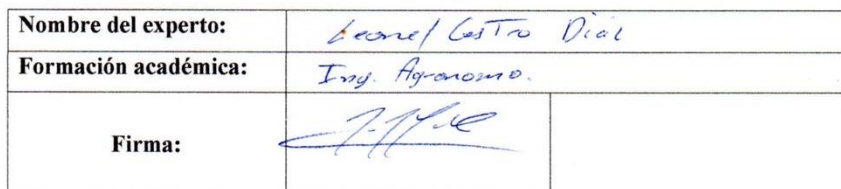 Nombre del experto: Leonel Castro Diaz
Formación académica: Ing. Agronomo.
Firma: